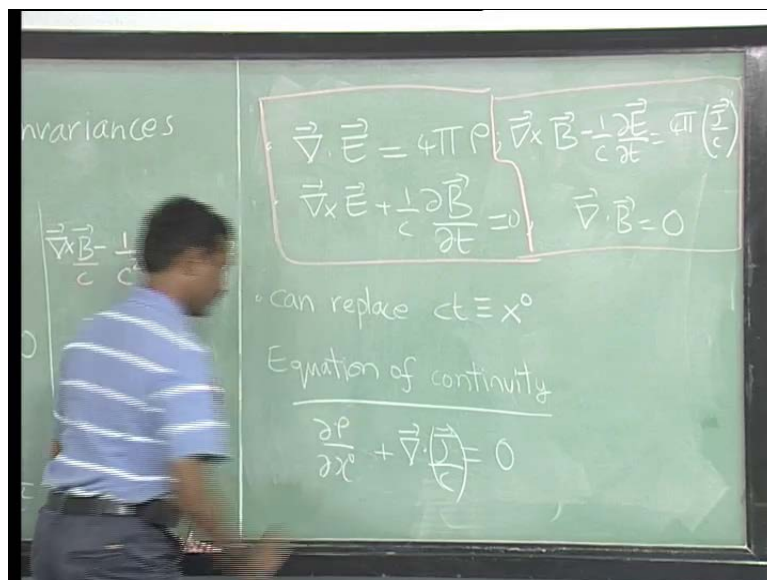 nvariances
∇⃗×B⃗/c − 1/c²
0
∇⃗ · E⃗ = 4πρ ; ∇⃗×B⃗ − 1/c ∂E⃗/∂t = 4π(J⃗/c)
∇⃗×E⃗ + 1/c ∂B⃗/∂t = 0, ∇⃗ · B⃗ = 0
• can replace ct ≡ x⁰
Equation of continuity
∂ρ/∂x⁰ + ∇⃗·(J⃗/c) = 0